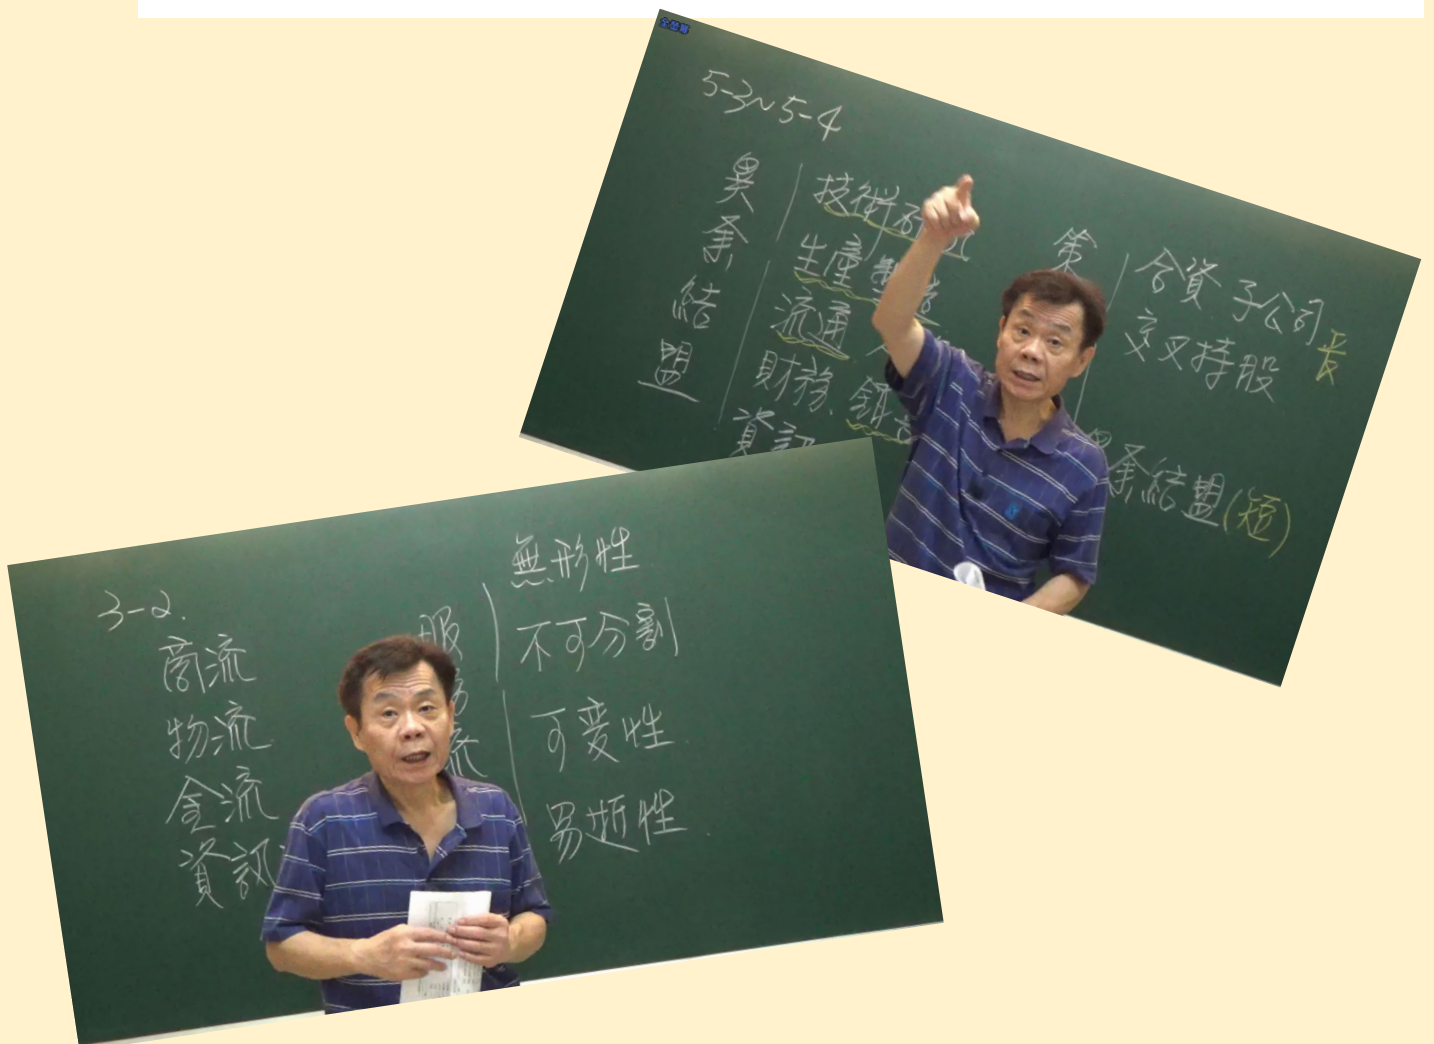 5-3~5-4
異業結盟
技術研
生產製造
流通
財務、銷售
資訊
策
合資子公司
交叉持股
長
異業結盟(短)
3-2.
商流
物流
金流
資訊
服務流
無形性
不可分割
可變性
易逝性